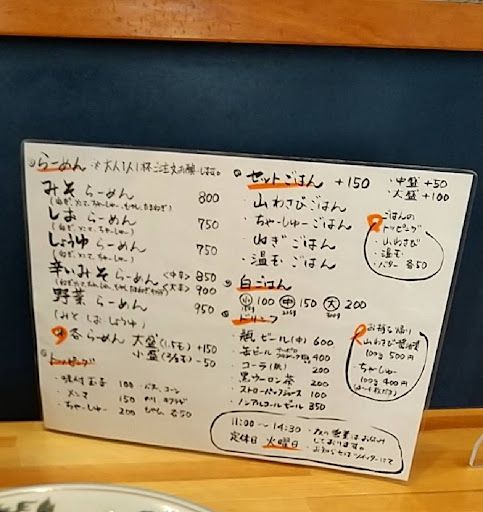 らーめん ※大人1人1杯ご注文お願いします。
みそらーめん 800
しおらーめん 750
しょうゆらーめん 750
辛いみそらーめん <中辛> 850
<大辛> 900
野菜らーめん 950
(みそ しお しょうゆ)
各らーめん 大盛(1.5玉) +150
小盛 -50
トッピング
味付玉子 100
メンマ 150
ちゃーしゅー 200
バター、コーン
のり
各50
セットごはん +150
・中盛 +50
・大盛 +100
・山わさびごはん
・ちゃーしゅーごはん
・ねぎごはん
・温玉ごはん
ごはんのトッピング
・山わさび
・温玉
・バター 各50
白ごはん
小 100 中 150 大 200
ドリンク
瓶ビール(中) 600
缶ビール 400
コーラ(瓶) 200
黒ウーロン茶 200
ストローパックジュース 100
ノンアルコールビール 350
お持ち帰り
山わさび醤油漬
100g 500円
・ちゃーしゅー
100g 400円
11:00〜14:30
定休日 火曜日
・夜の営業はお休み
しております。
・お知らせはツイッターにて